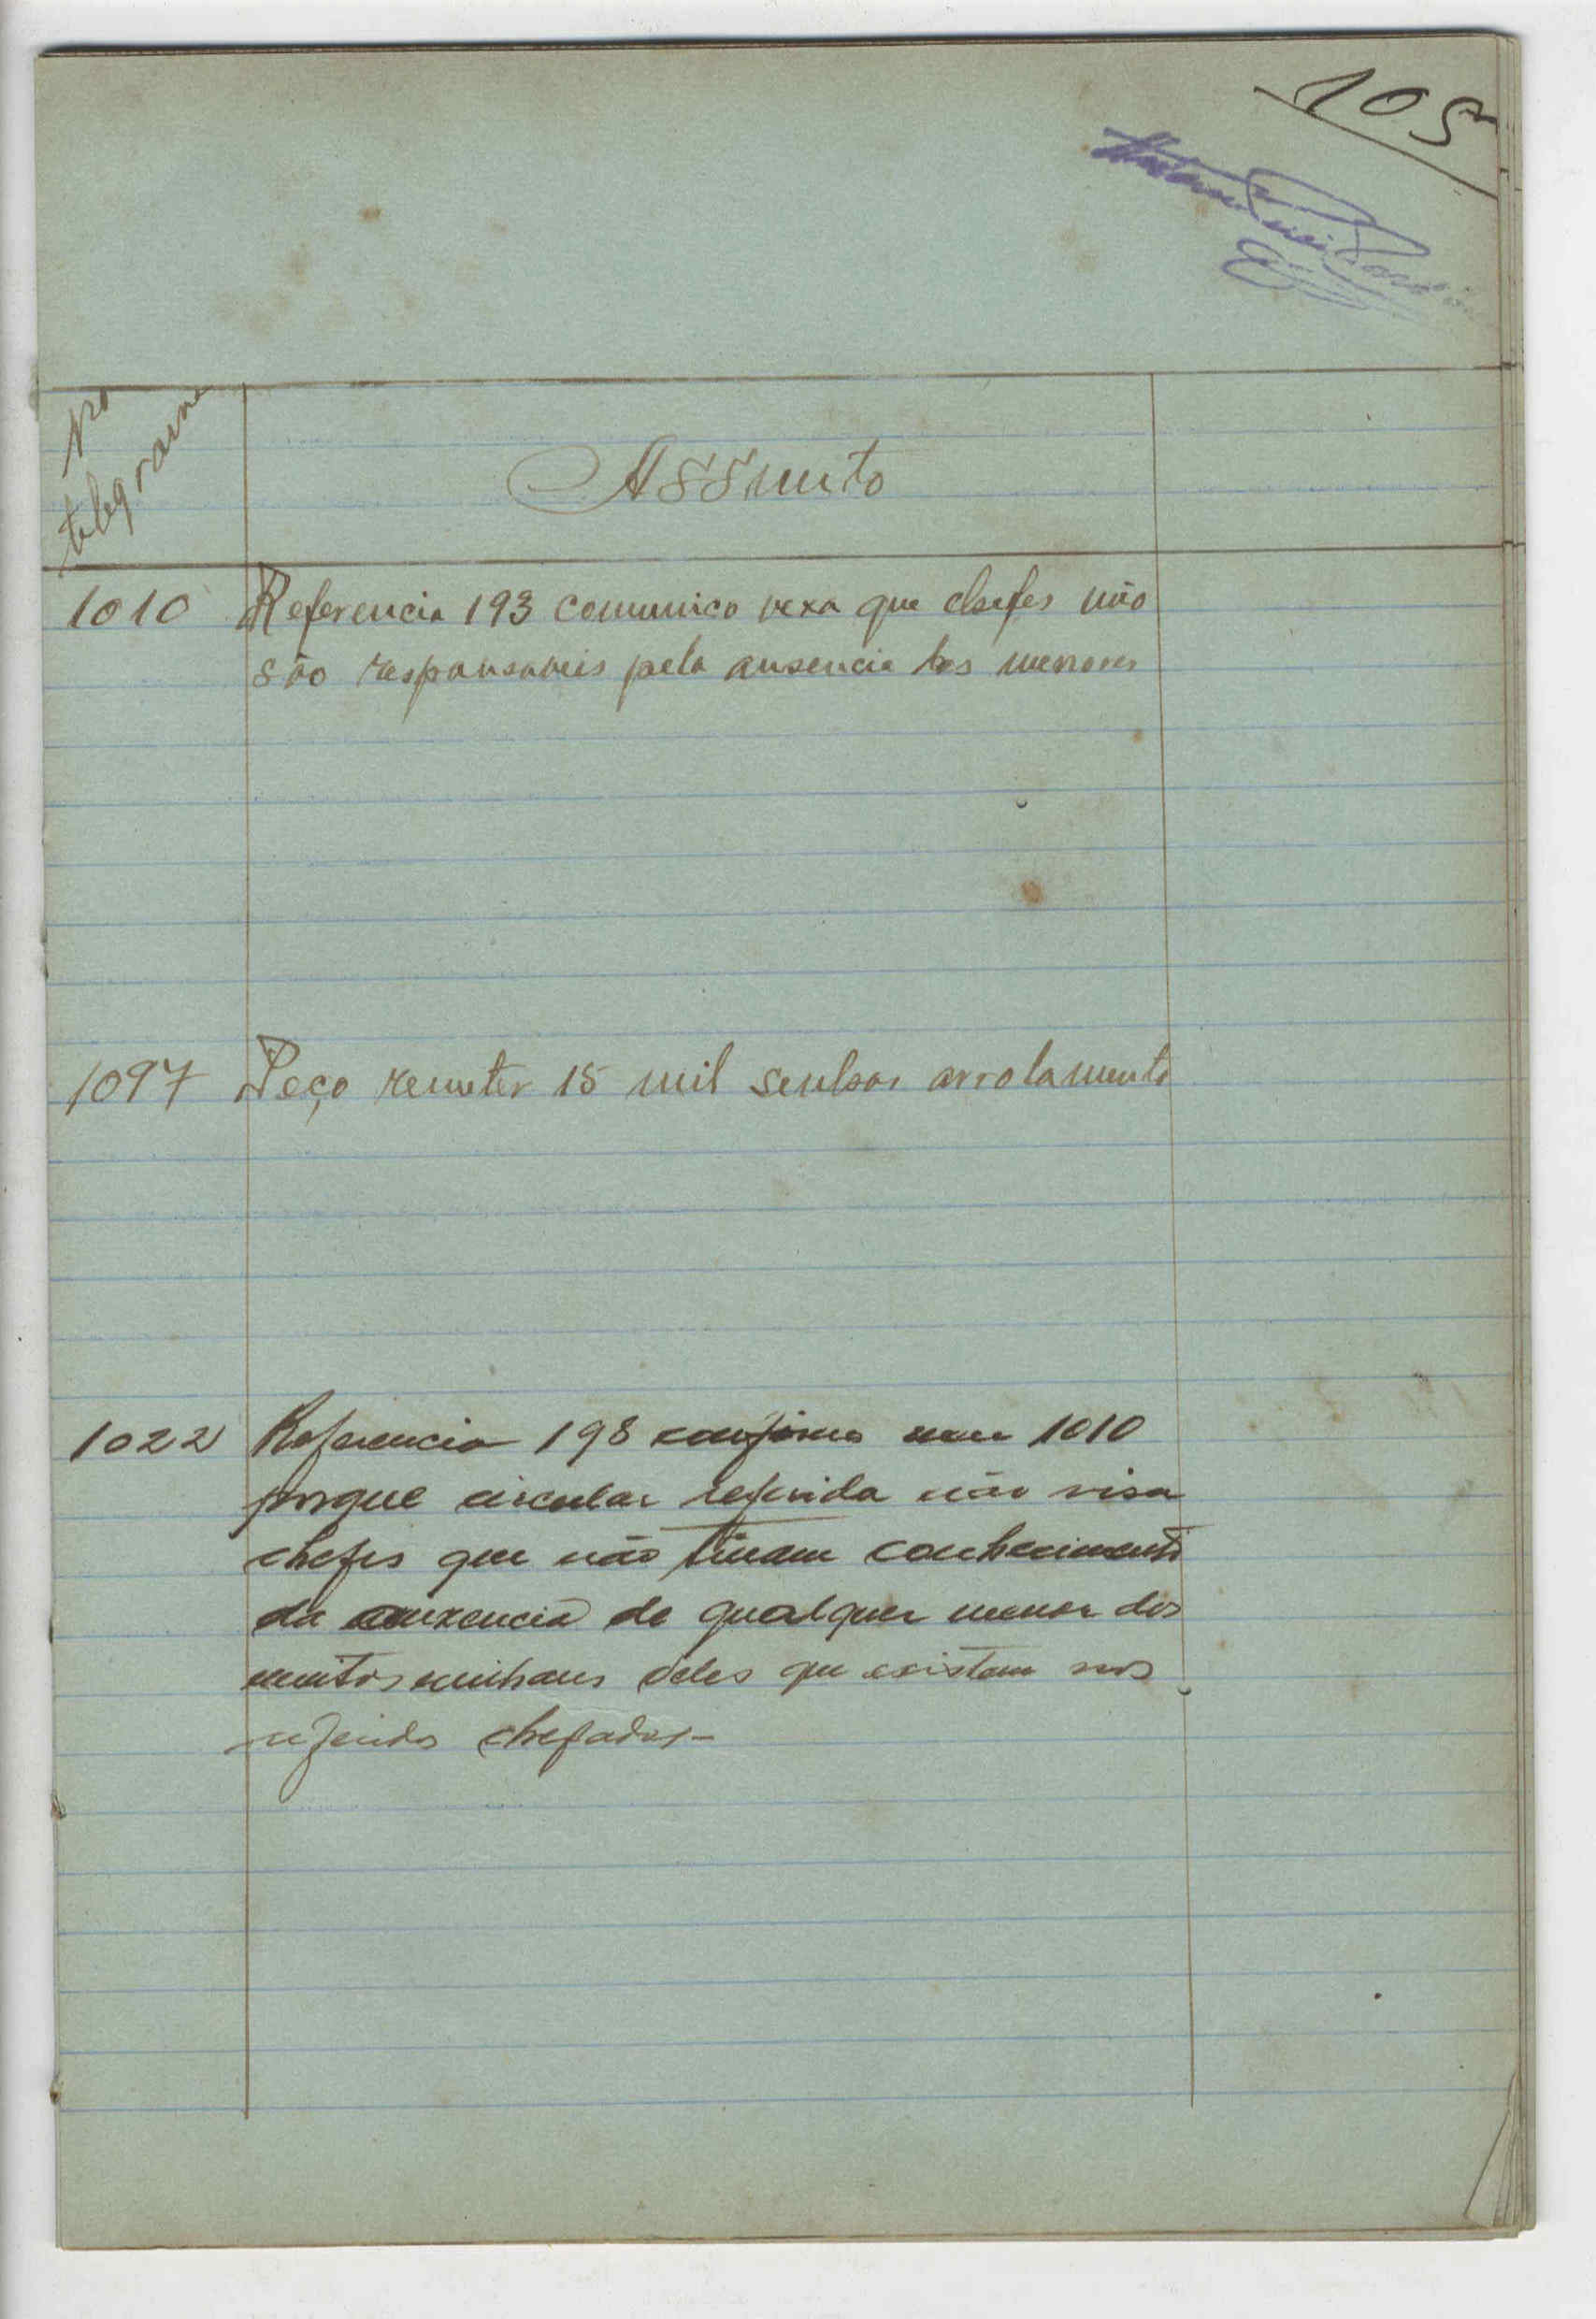 105
No
telegrama
Assunto
1010 Referencia 193 comunico vexa que chefes não
são responsaveis pela ausencia dos menores
1097 Peço remeter 15 mil senhas arrolamento
1022 Referencia 198 confirmo meu 1010
porque circular referida não visa
chefes que não tinham conhecimento
da auzencia de qualquer menor dos
muitos milhares deles que existam nos
referidos chefados-